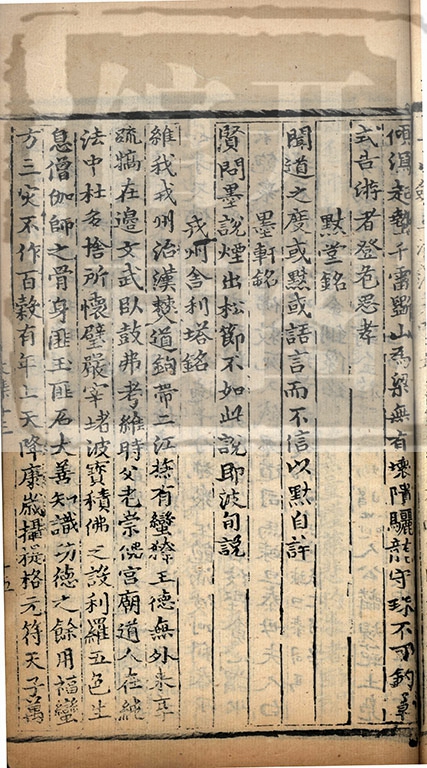 傾㵼起勢千雷鬭山爲梁無有壞隤驪龍守珠不可釣㫖
式吿游者登危思孝
默堂銘
聞道之度或默或語言而不信以默自許
墨軒銘
賢問墨說煙出松節不如此說即波旬說
戎州舍利塔銘
維我戎州治漢僰道鉤帶二江撫有蠻獠王德無外來享
疏犒在邊文武臥鼓弗考維時父老崇偶宮廟道人在純
法中杜多捨所懷璧嚴窣堵波寶積佛之設利羅五色生
息僧伽師之骨身匪玉匪石大善知識功德之餘用福蠻
方三災不作百穀有年上天降康歲攝提格元符天子萬